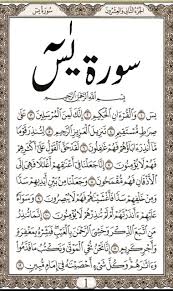 سورة يس الجزء الثاني والعشرون
سورة يٰسٓ
بِسْمِ اللَّهِ الرَّحْمَٰنِ الرَّحِيمِ
يسٓ ۝ وَالْقُرْءَانِ الْحَكِيمِ ۝ إِنَّكَ لَمِنَ الْمُرْسَلِينَ ۝ عَلَىٰ
صِرَٰطٍ مُّسْتَقِيمٍ ۝ تَنزِيلَ الْعَزِيزِ الرَّحِيمِ ۝ لِتُنذِرَ قَوْمًا
مَّآ أُنذِرَ ءَابَآؤُهُمْ فَهُمْ غَٰفِلُونَ ۝ لَقَدْ حَقَّ الْقَوْلُ عَلَىٰٓ أَكْثَرِهِمْ
فَهُمْ لَا يُؤْمِنُونَ ۝ إِنَّا جَعَلْنَا فِىٓ أَعْنَٰقِهِمْ أَغْلَٰلًا فَهِىَ إِلَى
الْأَذْقَانِ فَهُم مُّقْمَحُونَ ۝ وَجَعَلْنَا مِنۢ بَيْنِ أَيْدِيهِمْ سَدًّا
وَمِنْ خَلْفِهِمْ سَدًّا فَأَغْشَيْنَٰهُمْ فَهُمْ لَا يُبْصِرُونَ ۝ وَسَوَآءٌ
عَلَيْهِمْ ءَأَنذَرْتَهُمْ أَمْ لَمْ تُنذِرْهُمْ لَا يُؤْمِنُونَ ۝ إِنَّمَا تُنذِرُ
مَنِ اتَّبَعَ الذِّكْرَ وَخَشِىَ الرَّحْمَٰنَ بِالْغَيْبِ فَبَشِّرْهُ بِمَغْفِرَةٍ
وَأَجْرٍ كَرِيمٍ ۝ إِنَّا نَحْنُ نُحْىِ الْمَوْتَىٰ وَنَكْتُبُ مَا قَدَّمُوا۟
وَءَاثَٰرَهُمْ وَكُلَّ شَىْءٍ أَحْصَيْنَٰهُ فِىٓ إِمَامٍ مُّبِينٍ ۝
1